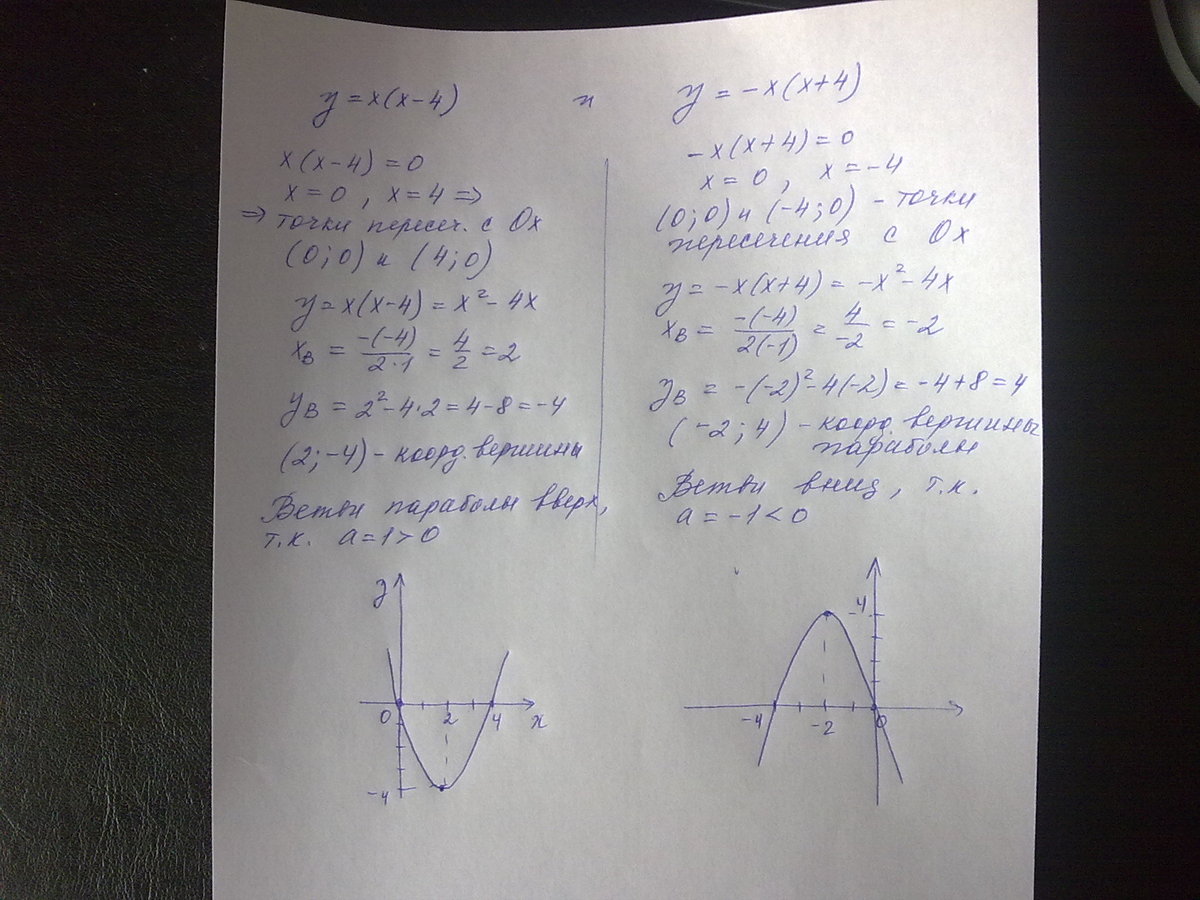 y = x(x-4) и y = -x(x+4)
x(x-4) = 0
x = 0 , x = 4 ⇒
⇒ точки пересеч. с Ox
(0;0) и (4;0)
y = x(x-4) = x² - 4x
xв = -(-4)/2·1 = 4/2 = 2
yв = 2² - 4·2 = 4 - 8 = -4
(2;-4) - коорд. вершины
Ветви параболы вверх,
т.к. a = 1 > 0
y
0 2 4 x
-4
-x(x+4) = 0
x = 0 , x = -4
(0;0) и (-4;0) - точки
пересечения с Ox
y = -x(x+4) = -x² - 4x
xв = -(-4)/2(-1) = 4/-2 = -2
yв = -(-2)² - 4(-2) = -4 + 8 = 4
(-2;4) - коорд. вершины
параболы
Ветви вниз, т.к.
a = -1 < 0
4
-4 -2 0